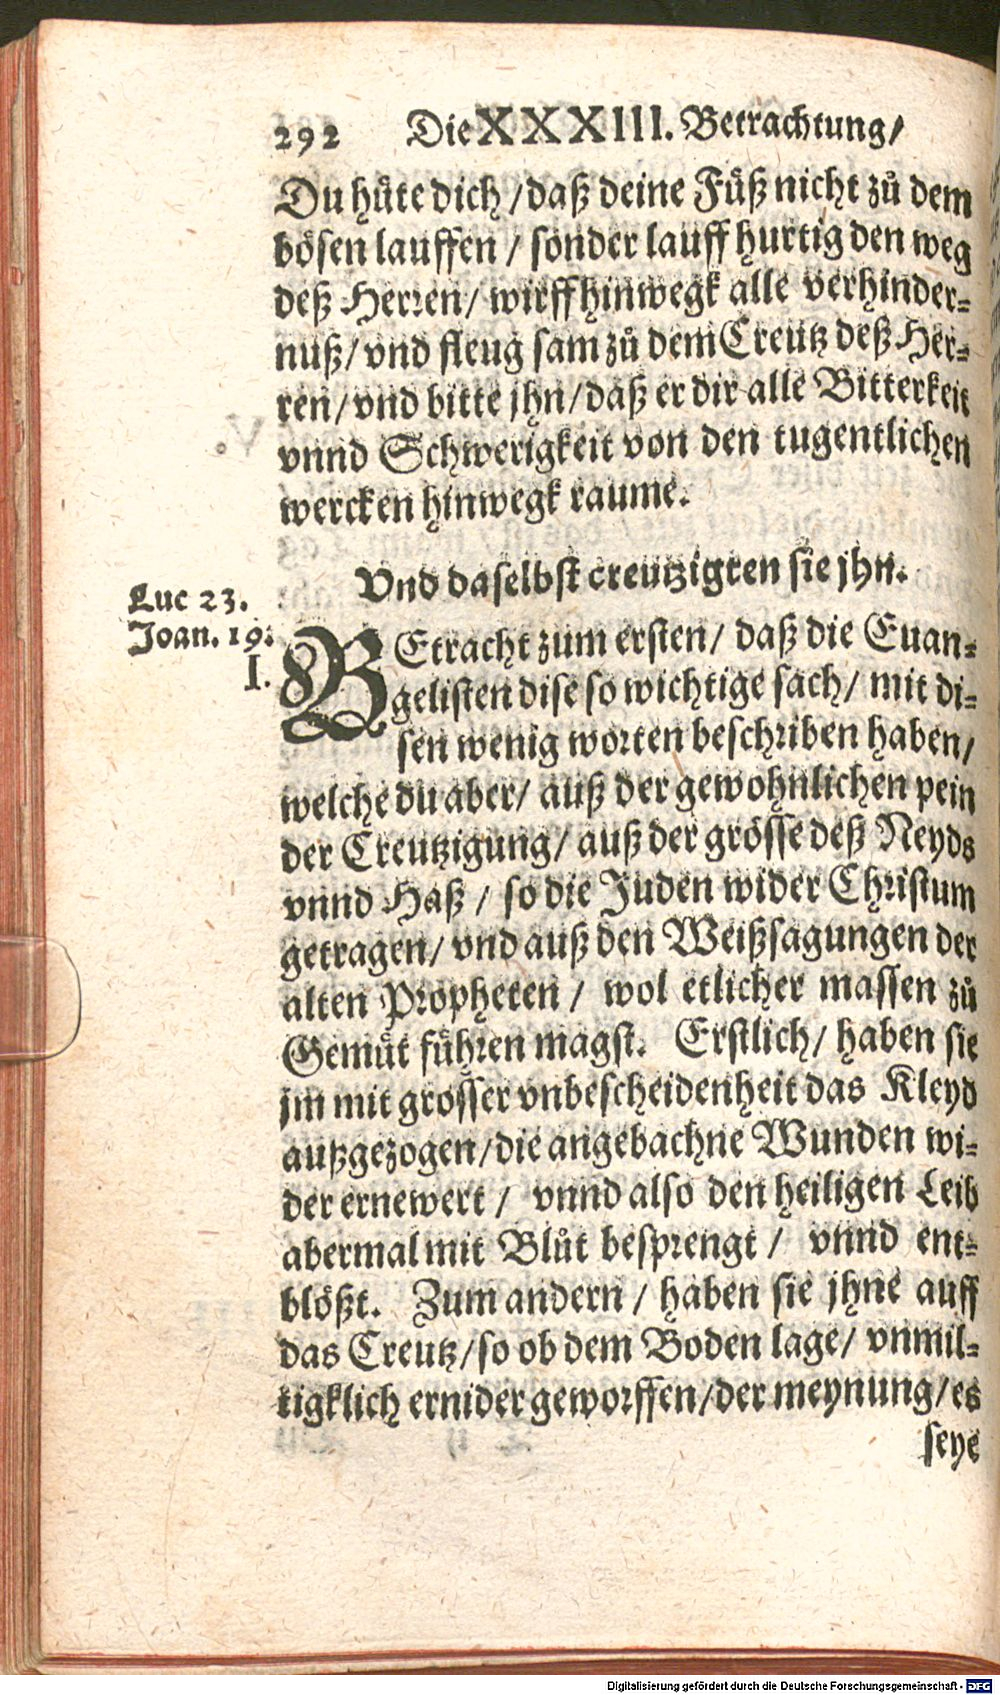 292 Die XXXIII. Betrachtung/
Du hůte dich /daß deine Fůß nicht zů dem
bösen lauffen / sonder lauff hurtig den weg
deß Herren/ wirff hinwegk alle verhinder-
nuß/ vnd fleug sam zů dem Creutz deß Her-
ren/ vnd bitte jhn/ daß er dir alle Bitterkeit
vnnd Schwerigkeit von den tugentlichen
wercken hinwegk raume.
Vnd daselbst creutzigten sie jhn.
Luc 23.
Joan. 19.
I.
BEtracht zum ersten/ daß die Euan-
gelisten dise so wichtige sach/ mit di-
sen wenig worten beschriben haben/
welche du aber/ auß der gewohnlichen pein
der Creutzigung/ auß der grösse deß Neyds
vnnd Haß / so die Juden wider Christum
getragen/ vnd auß den Weißsagungen der
alten Propheten / wol etlicher massen zů
Gemůt führen magst. Erstlich/ haben sie
jm mit grosser vnbescheidenheit das Kleyd
außgezogen/die angebachne Wunden wi-
der ernewert / vnnd also den heiligen Leib
abermal mit Blůt besprengt / vnnd ent-
blößt. Zum andern / haben sie jhne auff
das Creutz/so ob dem Boden lage/ vnmil-
tigklich ernider geworffen/der meynung/es
seye
Digitalisierung gefördert durch die Deutsche Forschungsgemeinschaft - DFG